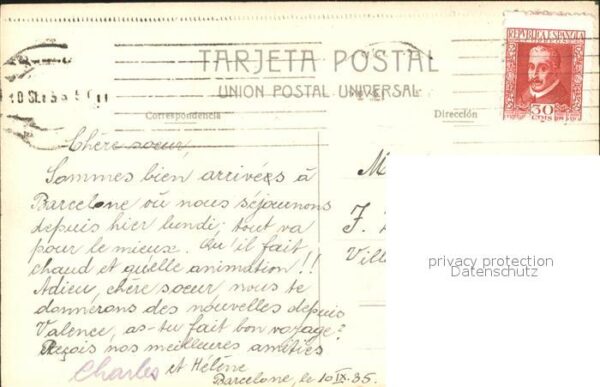 REPUBLICA ESPAÑOLA
30
CTMS
TARJETA POSTAL
UNION POSTAL UNIVERSAL
Correspondencia
Dirección
Chère soeur,
Sommes bien arrivées à
Barcelone où nous séjournons
depuis hier lundi; tout va
pour le mieux. Qu'il fait
chaud et quelle animation!!
Adieu, chère soeur nous te
donnerons des nouvelles depuis
Valence, as-tu fait bon voyage?
Reçois nos meilleures amitiés
Charles et Hélène
Barcelone, le 10 IX. 35.
M
F.
Vill
privacy protection
Datenschutz